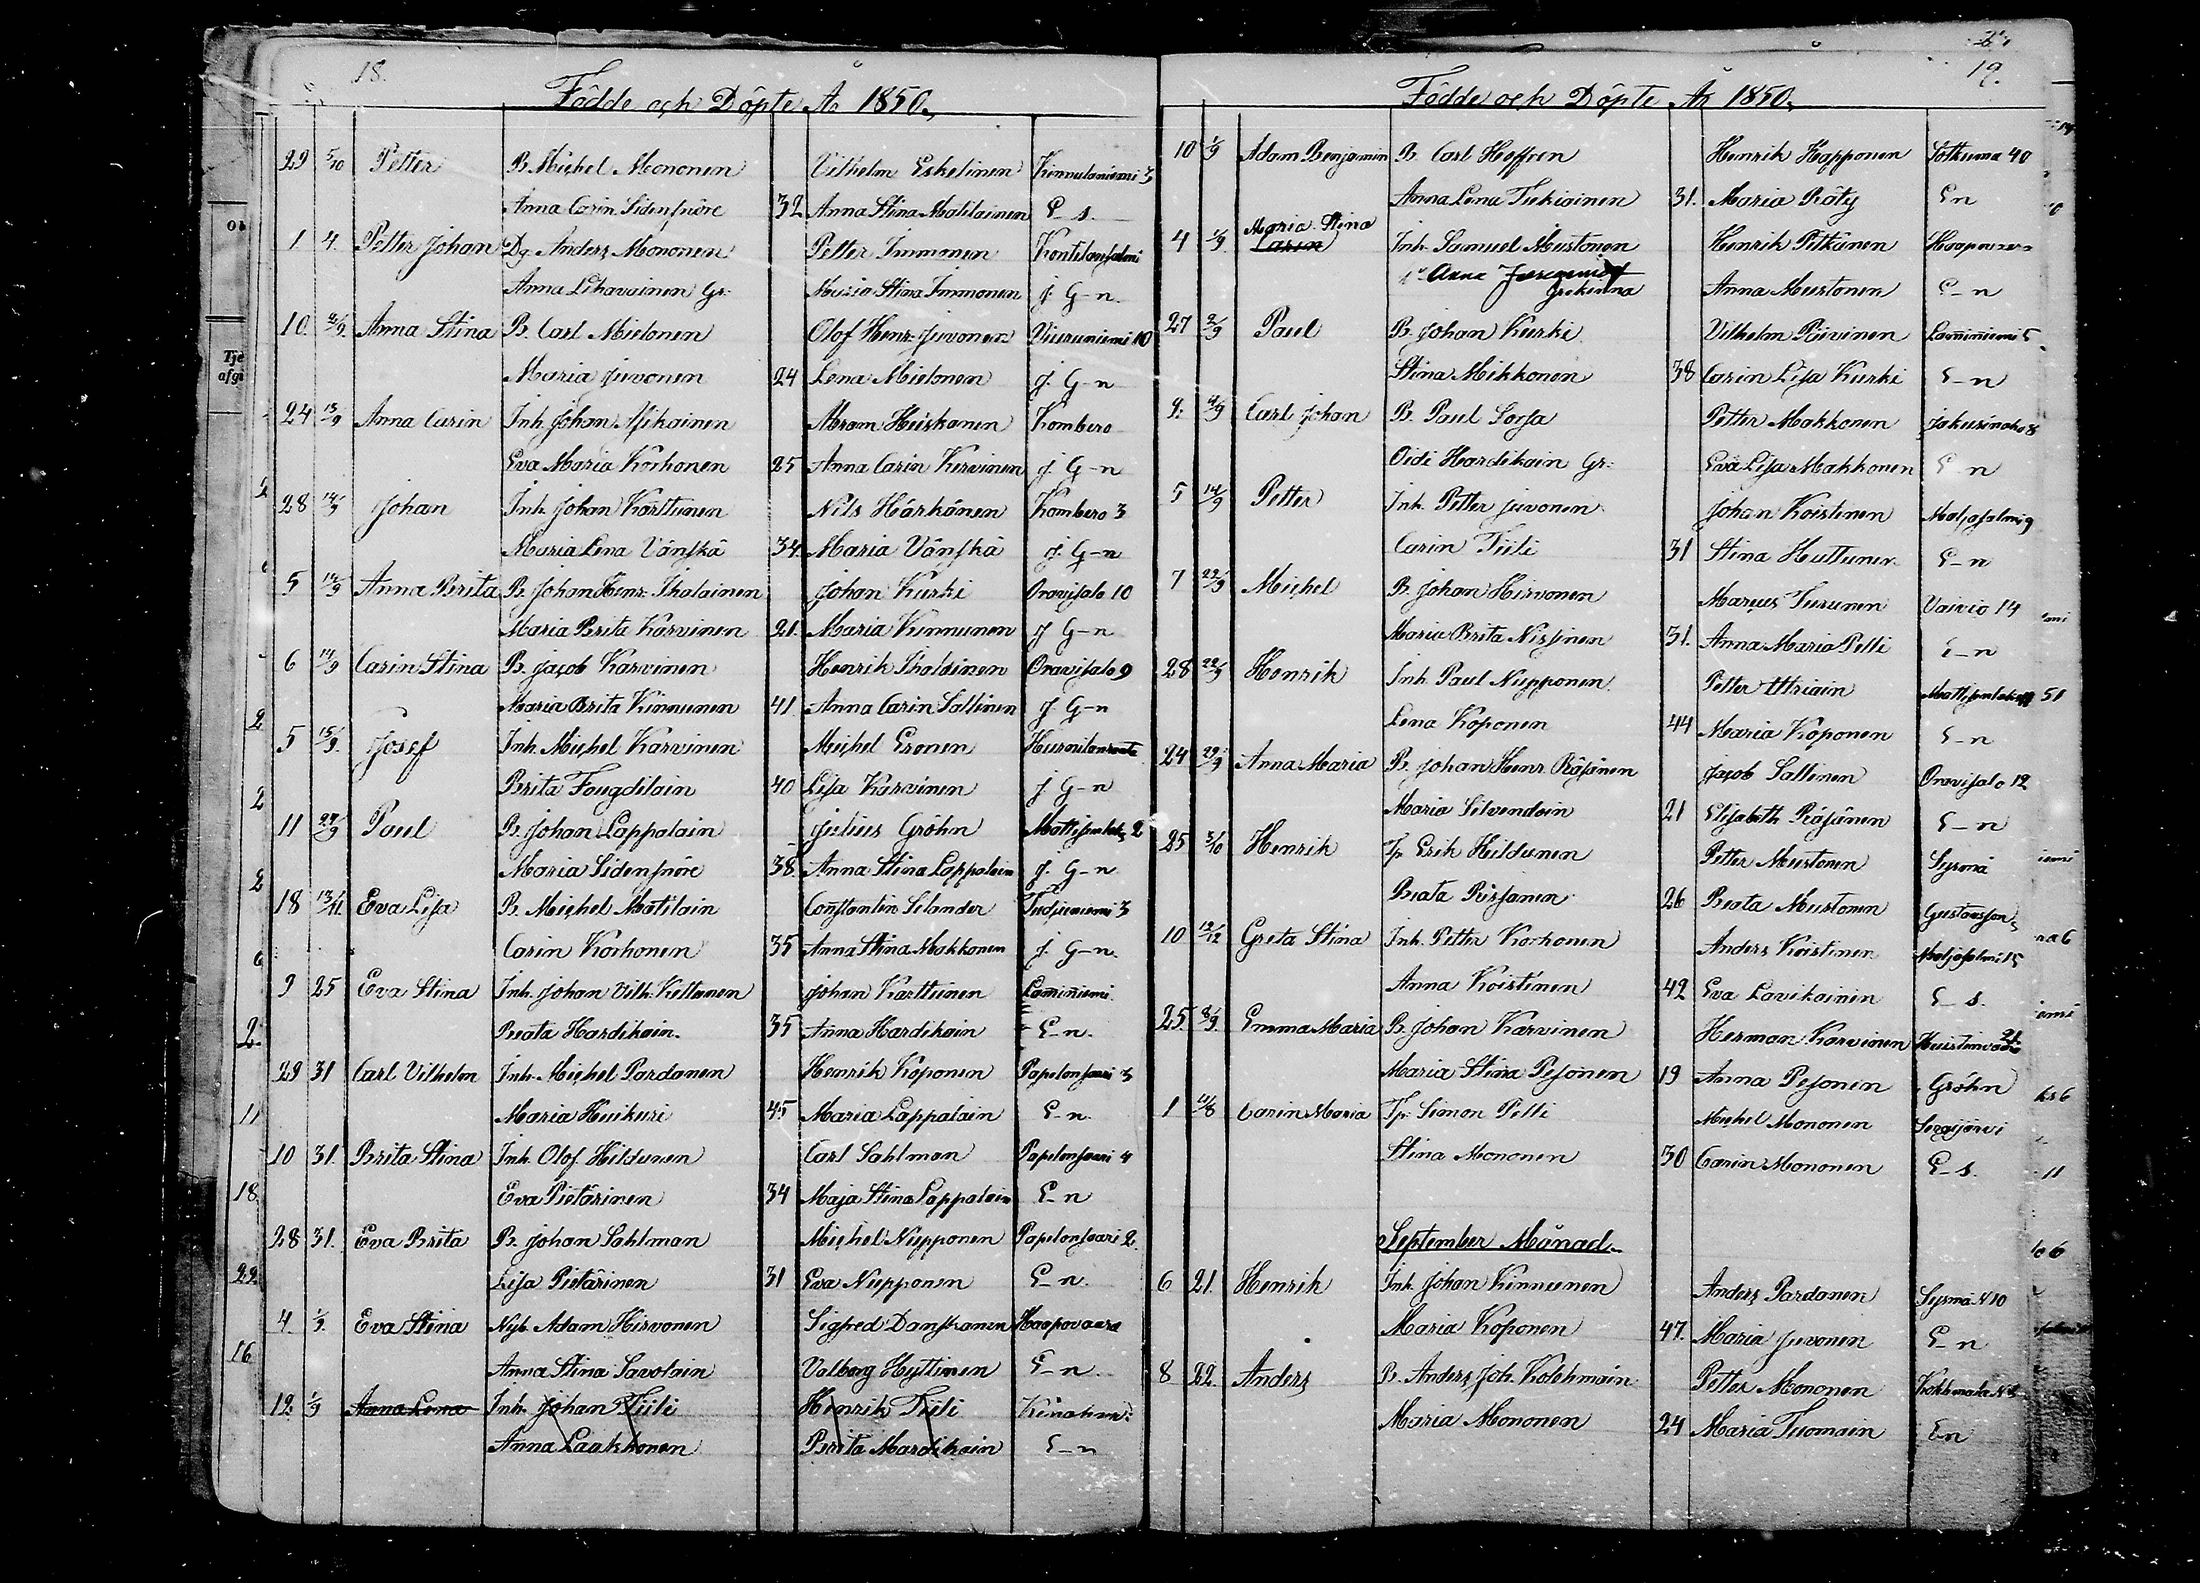 18.
Födde och Döpte År 1850.
29 5/10 Petter B. Michel Mononen Vilhelm Eskelinen Kinnulaniemi 3
Anna Carin Sidensnöre 32 Anna Stina Matilainen E s.
1 4. Petter Johan Dg. Anders Mononen Petter Immonen Kontilansalmi
Anna Lihavainen Gr. Maria Stina Immonen J. G-n
10. Anna Stina B. Carl Mielonen Olof Henr. Juvonen Viuruniemi 10
Maria Juvonen 24 Lena Mielonen J. G-n
24 13/9 Anna Carin Inh. Johan Asikainen Abram Heiskanen Kombero
Eva Maria Korhonen 25 Anna Carin Kervinen J. G-n
28 14/9 Johan Inh. Johan Karttunen Nils Härkönen Kombero 3
Maria Lena Vänskä 34. Maria Vänskä J. G-n
5 14/9 Anna Brita B. Johan Henr. Ihalainen Johan Kurki Oravisalo 10
Maria Brita Karvinen 21. Maria Kinnunen J G-n
6 14/9 Carin Stina B. Jacob Karvinen Henrik Ihalainen Oravisalo 9
Maria Brita Kinnunen 41 Anna Carin Sallinen J. G-n
5 15/9. Josef Inh. Michel Karvinen Michel Eronen
Brita Fougdilain 40 Lisa Karvinen J G-n
11 27/9 Paul B. Johan Lappalain Julius Gröhn 2
Maria Sidensnöre 38 Anna Stina Lappalain J. G-n
18 13/11 Eva Lisa B. Michel Matilain Constantin Selander 3
Carin Korhonen 35 Anna Stina Makkonen J. G-n.
9 25 Eva Stina Inh. Johan Vilh. Kettunen Johan Karttunen Laminniemi
Beata Hardikain. 35 Anna Hardikain E-n.
29 31 Carl Vilhelm Inh. Michel Pardanen Henrik Koponen Papelonsaari 3
Maria Huikuri 45 Maria Lappalain E-n
10 31. Brita Stina Inh. Olof Hildunen Carl Sahlman Papelonsaari 4
Eva Pietarinen 34 Maja Stina Lappalain E-n
28 31. Eva Brita B. Johan Sahlman Michel Nupponen Papelonsaari 2.
Lisa Pietarinen 31 Eva Nupponen E-n.
4. 1/9. Eva Stina Nyb. Adam Hirvonen Sigfred Danskanen Haapovaara
Anna Stina Savolain Valborg Hyttinen E-n.
12 1/9 Anna Lena Inh. Johan Tiili Henrik Tiili
Anna Laakkonen Brita Mardikain E-n
19.
Födde och Döpte År 1850.
10 1/9 Adam Benjamin B. Carl Hoffren Henrik Happonen Sotkuma 40
Anna Lena Tiekiainen 31. Maria Räty E n
Maria Stina
4 Carin Inh. Samuel Mustonen Henrik Pitkänen
Anna Anna Mustonen E-n
27 2/9 Paul B. Johan Kurki Vilhelm Piirinen Laminniemi 5
Stina Mikkonen 38 Carin Lisa Kurki E-n
9. 4/9 Carl Johan B. Paul Sorsa Petter Makkonen 8
Oidi Hardikain Gr. Eva Lisa Makkonen E n
5 14/9 Petter Inh. Petter Juvonen Johan Koistinen Maljasalmi 9
Carin Tiili 31 Stina Huttunen E-n
7 22/9 Michel B. Johan Hirvonen Marcus Turunen Vaivio 14
Maria Brita Nissinen 31. Anna Maria Pelli E-n
28 22/9 Henrik Inh. Paul Nupponen Petter Utriain 51
Lena Koponen 44 Maria Koponen E-n
24 29/9 Anna Maria B. Johan Henr. Räsänen Jacob Sallinen Oravisalo 12
Maria Silvendoin 21 Elisabeth Räsänen E-n
25 3/10 Henrik Tp. Erik Hildunen Petter Mustonen Sysmä
Beata Pirsanen 26 Beata Mustonen Gustafsson
10 12/12 Greta Stina Inh. Petter Korhonen Anders Koistinen Maljasalmi 15
Anna Koistinen 42 Eva Lavikainen E s.
25 8/9. Emma Maria B. Johan Karvinen Herman Karvinen 21.
Maria Stina Pesonen 19 Anna Pesonen Gröhn
1 11/8 Carin Maria Tp. Simon Pelli Michel Mononen
Stina Mononen 30 Carin Mononen E s.
September Månad
6 21. Henrik Inh. Johan Kinnunen Anders Pardanen Sysmä N 10
Maria Koponen 47. Maria Juvonen E-n
8 22 Anders B. Anders Joh. Kolehmain Petter Mononen
Maria Mononen 24 Maria Tuomain E n